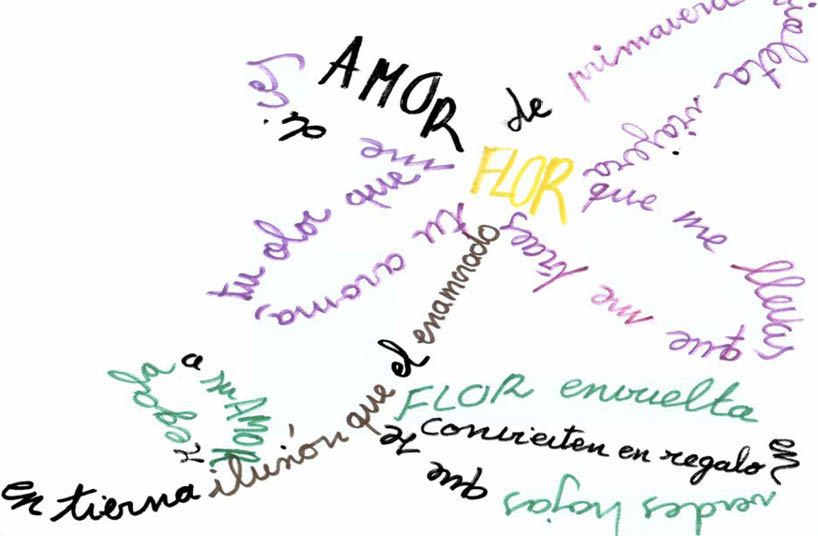 AMOR de primavera
viajera
que me llevas
que me traes
FLOR
tu aroma,
tu olor que me
en tierna ilusión que el enamorado
a su AMOR
FLOR envuelta
en
verdes hojas
que te
convierten en regalo